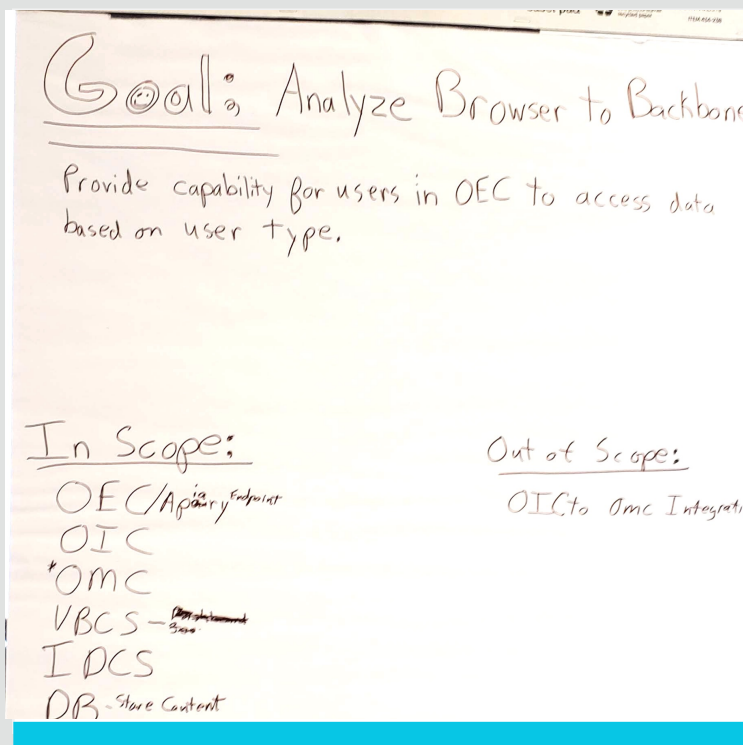 Goal: Analyze Browser to Backbone
Provide capability for users in OEC to access data
based on user type.
In Scope:
OEC/Apiary Endpoint
OIC
*OMC
VBCS -
IDCS
DB - Store Content
Out of Scope:
OIC to Omc Integrati